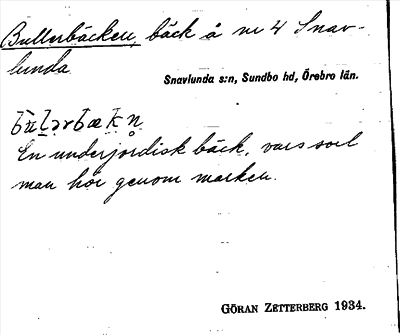 Bullerbäcken, bäck å nr 4 Snav-
lunda
Snavlunda s:n, Sundbo hd, Örebro län.
En underjordisk bäck, vars sorl
man hör genom marken.
GÖRAN ZETTERBERG 1934.